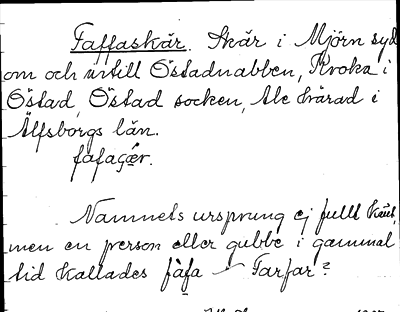 Faffaskär. Skär i Mjörn syd
om och intill Östadnabben, Kroka i
Östad, Östad socken, Ale härad i
Älfsborgs län.
fafaɕęr.
Namnets ursprung ej fullt känt,
men en person eller gubbe i gammal
tid kallades fàfa – Farfar?